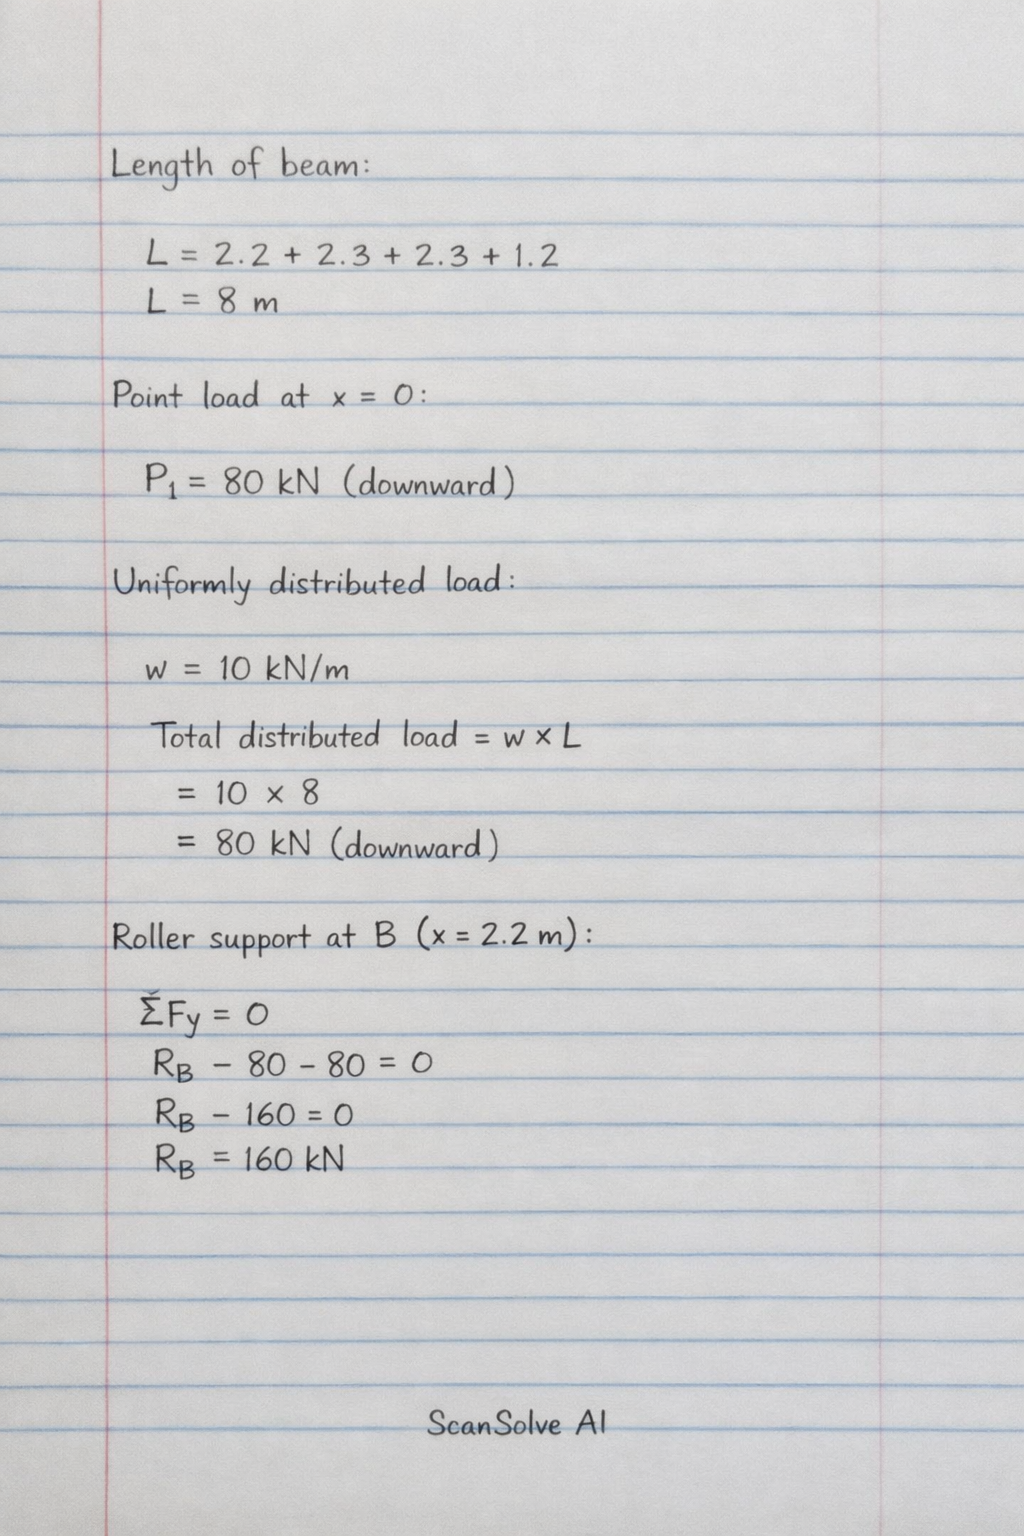 Length of beam:
L = 2.2 + 2.3 + 2.3 + 1.2
L = 8 m
Point load at x = 0:
P₁ = 80 kN (downward)
Uniformly distributed load:
w = 10 kN/m
Total distributed load = w × L
= 10 × 8
= 80 kN (downward)
Roller support at B (x = 2.2 m):
ΣFy = 0
R_B − 80 − 80 = 0
R_B − 160 = 0
R_B = 160 kN
ScanSolve AI